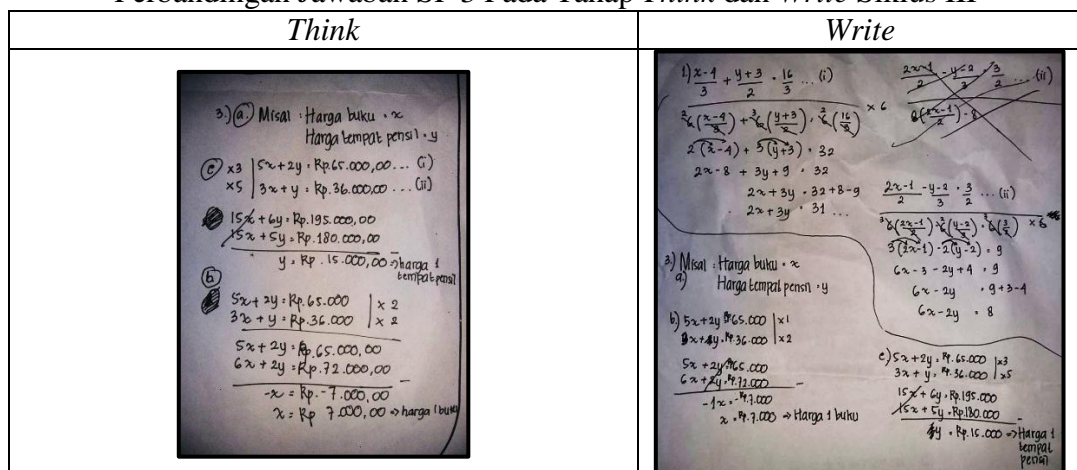 Perbandingan Jawaban SP 3 Pada Tahap Think dan Write Siklus III
Think
Write
3.) a. Misal : Harga buku = x
Harga tempat pensil = y
c x3 | 5x+2y = Rp.65.000,00 ... (i)
x5 | 3x+y = Rp.36.000,00 ... (ii)
15x + 6y = Rp.195.000,00
15x + 5y = Rp.180.000,00 -
y = Rp. 15.000,00 => harga 1
tempat pensil
b
5x + 2y = Rp.65.000 | x 2
3x + y = Rp.36.000 | x 2
5x + 2y = Rp.65.000,00
6x + 2y = Rp.72.000,00 -
-x = Rp.-7.000,00
x = Rp 7.000,00 => harga 1 buku
1) x-4/3 + y+3/2 = 16/3 ... (i)
x 6
6(x-4/3) + 6(y+3/2) = 6(16/3)
2(x-4) + 3(y+3) = 32
2x-8 + 3y+9 = 32
2x + 3y = 32+8-9
2x + 3y = 31 ...
2x-1/2 - y-2/3 = 3/2 ... (ii)
2x-1/2 - y-2/3 = 3/2 ... (ii)
x 6
6(2x-1/2) - 6(y-2/3) = 6(3/2)
3(2x-1) - 2(y-2) = 9
6x - 3 - 2y + 4 = 9
6x - 2y = 9+3-4
6x - 2y = 8
3.) Misal : Harga buku = x
a) Harga tempat pensil = y
b) 5x+2y = Rp.65.000 | x1
3x+y = Rp.36.000 | x2
5x + 2y = Rp.65.000
6x + 2y = Rp.72.000 -
-1x = -Rp.7.000
x = Rp.7.000 => Harga 1 buku
c) 5x + 2y = Rp.65.000 | x3
3x + y = Rp.36.000 | x5
15x + 6y = Rp.195.000
15x + 5y = Rp.180.000 -
y = Rp.15.000 => Harga 1
tempat
pensil